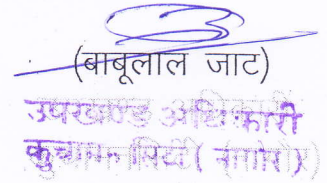 (बाबूलाल जाट)
उपखण्ड अधिकारी
कुचामन सिटी (नागौर)